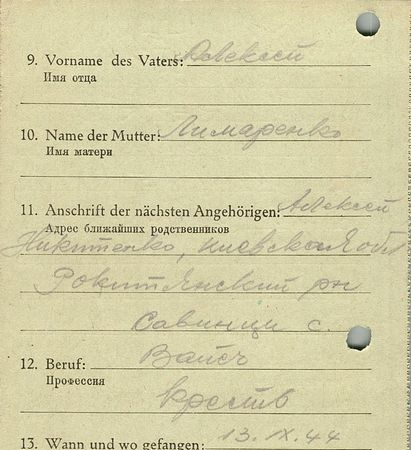 9. Vorname des Vaters: Алексей
Имя отца
10. Name der Mutter: Лимаренко
Имя матери
11. Anschrift der nächsten Angehörigen: Алексей
Адрес ближайших родственников
Никитенко, киевская обл
Рокитянский рн
Савинци с.
12. Beruf:
Профессия
13. Wann und wo gefangen: 13.IX.44